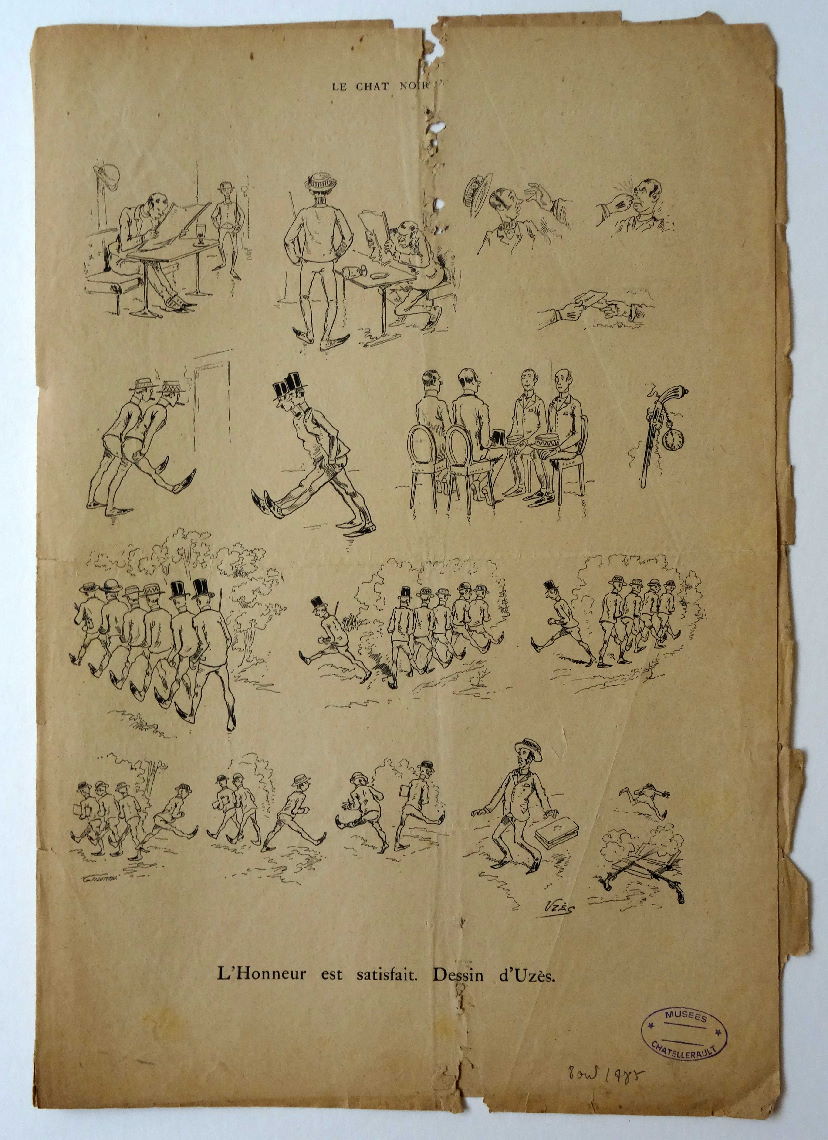 LE CHAT NOIR
Uzès
L'Honneur est satisfait. Dessin d'Uzès.
MUSEES
CHATELLERAULT